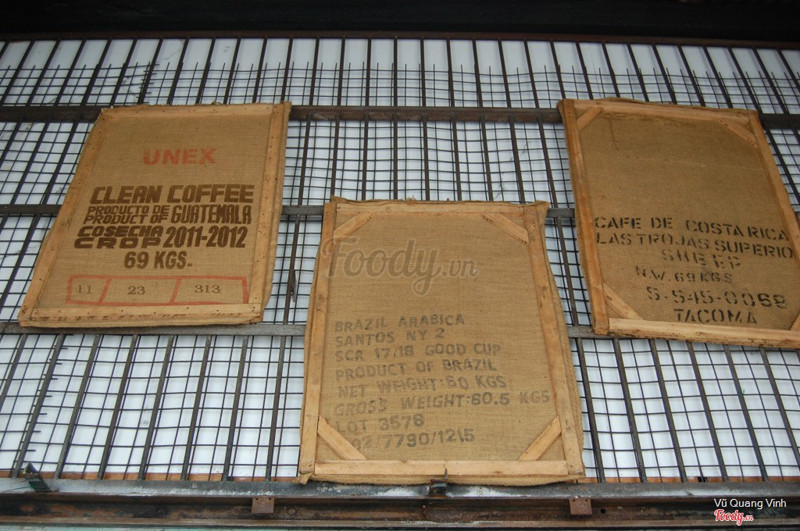 UNEX
CLEAN COFFEE
PRODUCTO DE
PRODUCT OF GUATEMALA
COSECHA
CROP 2011-2012
69 KGS.
11 23 313
Foody.vn
BRAZIL ARABICA
SANTOS NY 2
SCR 17.18 GOOD CUP
PRODUCT OF BRAZIL
NET WEIGHT:60 KGS
GROSS WEIGHT:60.5 KGS
LOT 3576
002/7790/1215
CAFE DE COSTA RICA
LAS TROJAS SUPERIO
SHB EP
N.W. 69 KGS
5-545-0069
TACOMA
Vũ Quang Vinh
Foody.vn